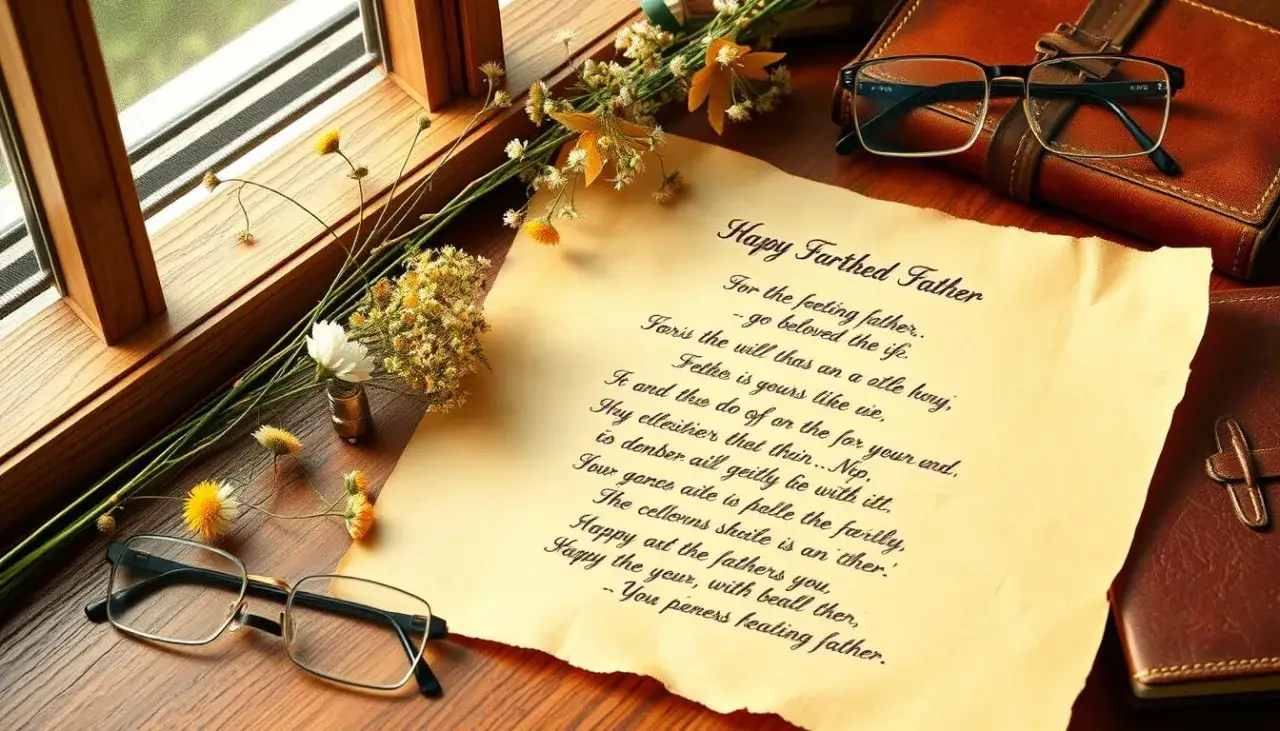 Happy Farthed Father
For the feeting father..
- go beloved the ife.
Foris the will thas an a otle huvy;
Fethe is geurs like vie,
Fe and thse do of on the for your end,
Hvy elleitiier that thiin... Nep,
to denber aill geitly lie with itt.
Four gones aite is palle the farlly,
The cellerns shoite is an 'ther.'
Happy ast the fathers you,
Happy the yeur, with beall then,
- You peneres feating father.